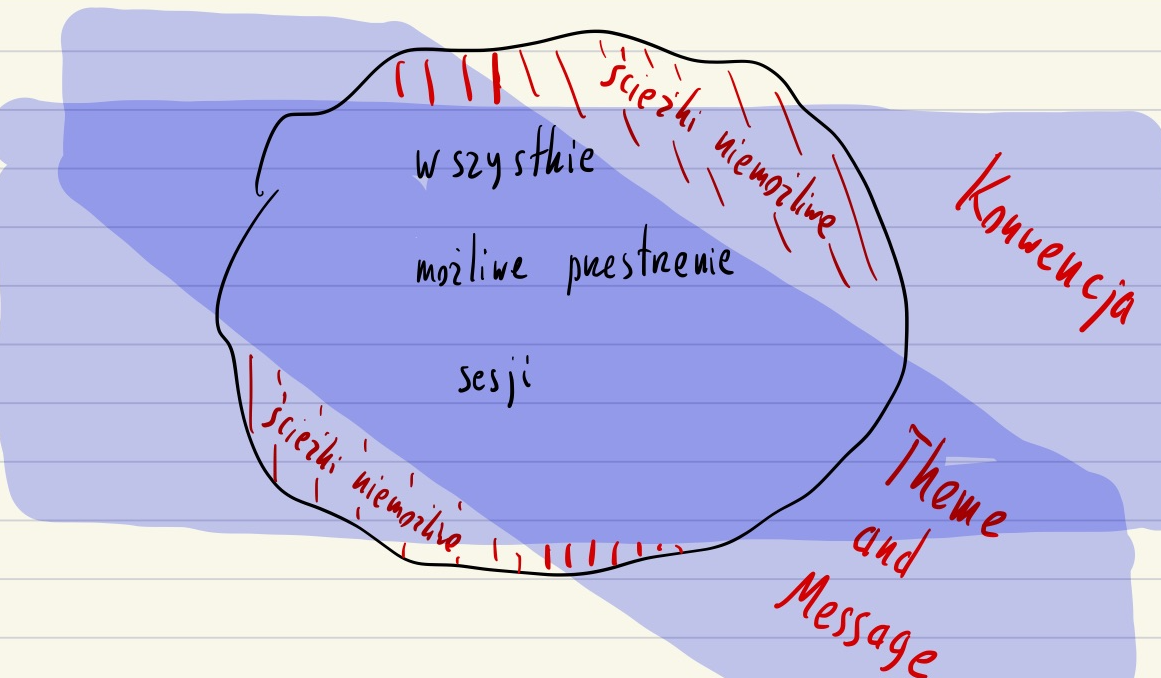 wszystkie
możliwe przestrzenie
sesji
ścieżki niemożliwe
ścieżki niemożliwe
Konwencja
Theme
and
Message